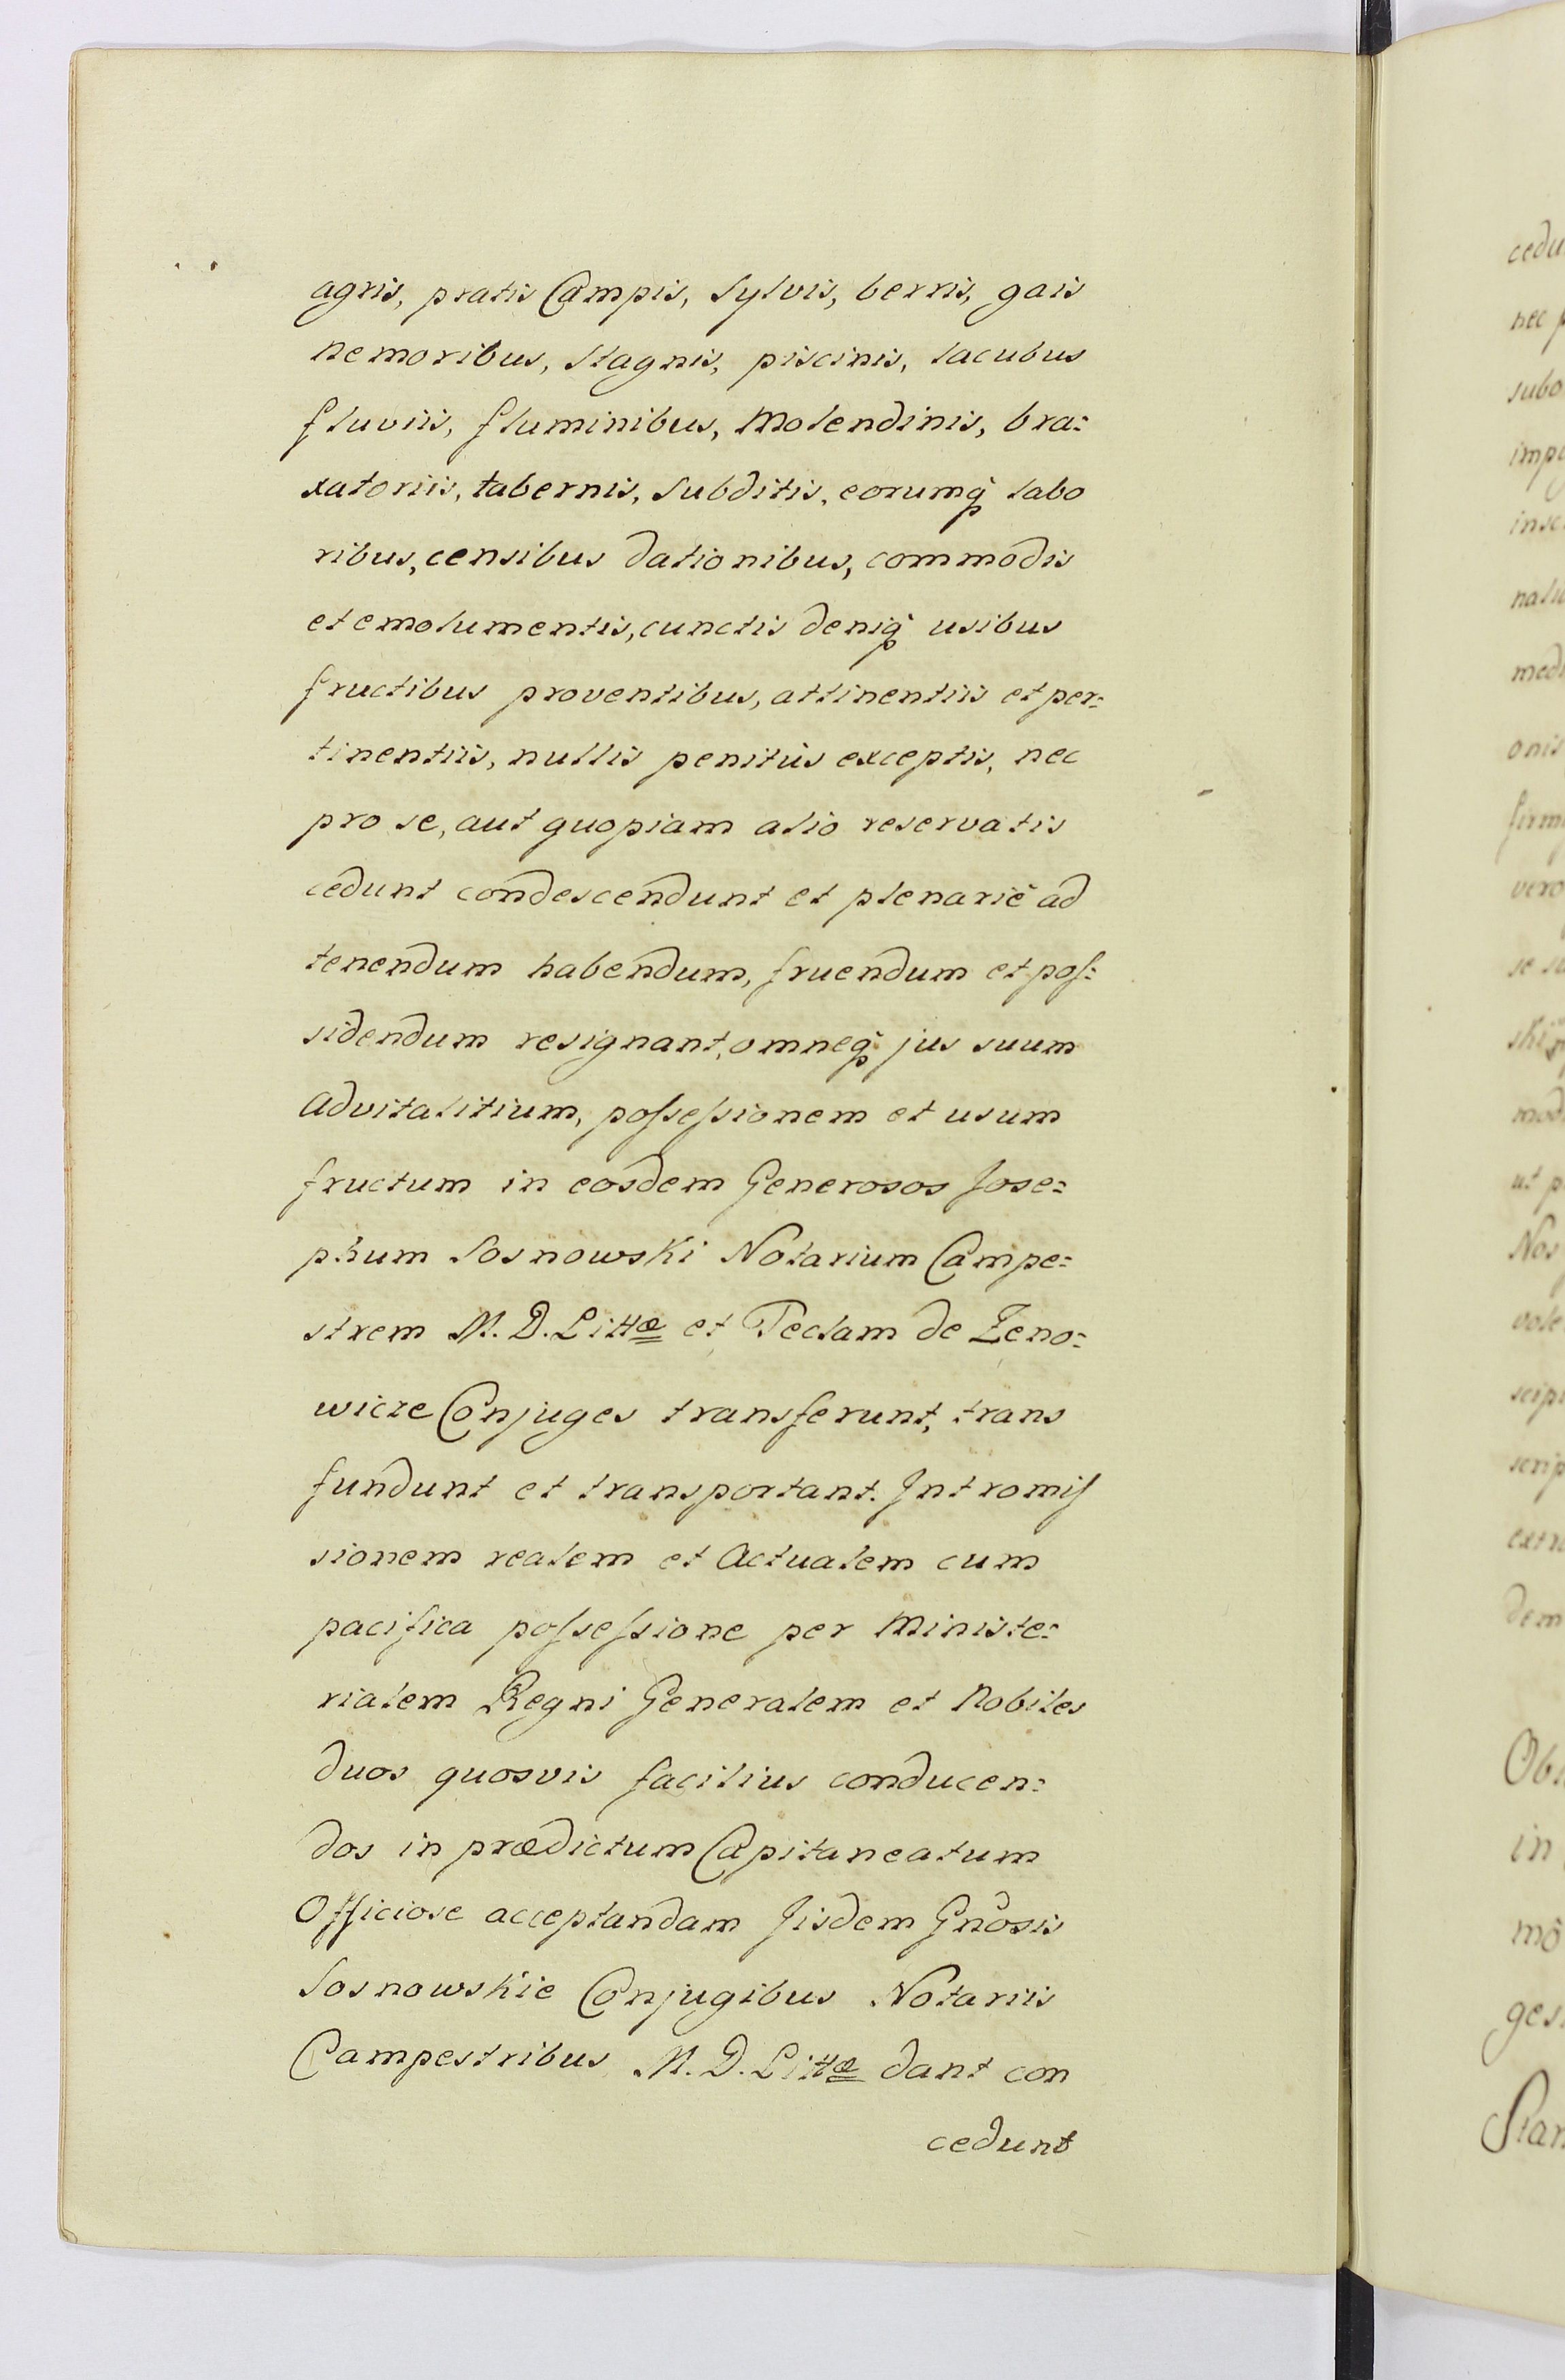 agris, pratis Campis, Sylvis, berris, gais
nemoribus, Stagnis, piscinis, lacubus
fluviis, fluminibus, Molendinis, bra=
xatoriis, tabernis, Subditis, eorumq̨ labo
ribus, censibus dationibus, commodis
et emolumentis, cunctis deniq̨ usibus
fructibus proventibus, attinentiis et per=
tinentiis, nullis penitùs exceptis, nec
pro se, aut quopiam alio reservatis
cedunt condescendunt et plenariè ad
tenendum habendum, fruendum et pos=
sidendum resignant, omneq̨ jus suum
Advitalitium, poſseſsionem et usum
fructum in eosdem Generosos Jose=
phum Sosnowski Notarium Campe=
strem M. D. Littæ et Teclam de Zeno=
wicze Conjuges transferunt, trans
fundunt et transportant. Intromiſ
sionem realem et Actualem cum
pacifica poſseſsione per Ministe=
rialem Regni Generalem et Nobiles
duos quosvis facilius conducen=
dos in prædictum Capitaneatum
Officiose acceptandam Jisdem Gnosis
Sosnowskie Conjugibus Notariis
Campestribus M. D. Littæ dant con
cedunt
cedu
nec p
subo
imp
inse
medi
onis
firm
vero
se su
mod
ut p
Nos
vole
scip
scrip
extr
dem
Ob
in
mo
ges
Stan